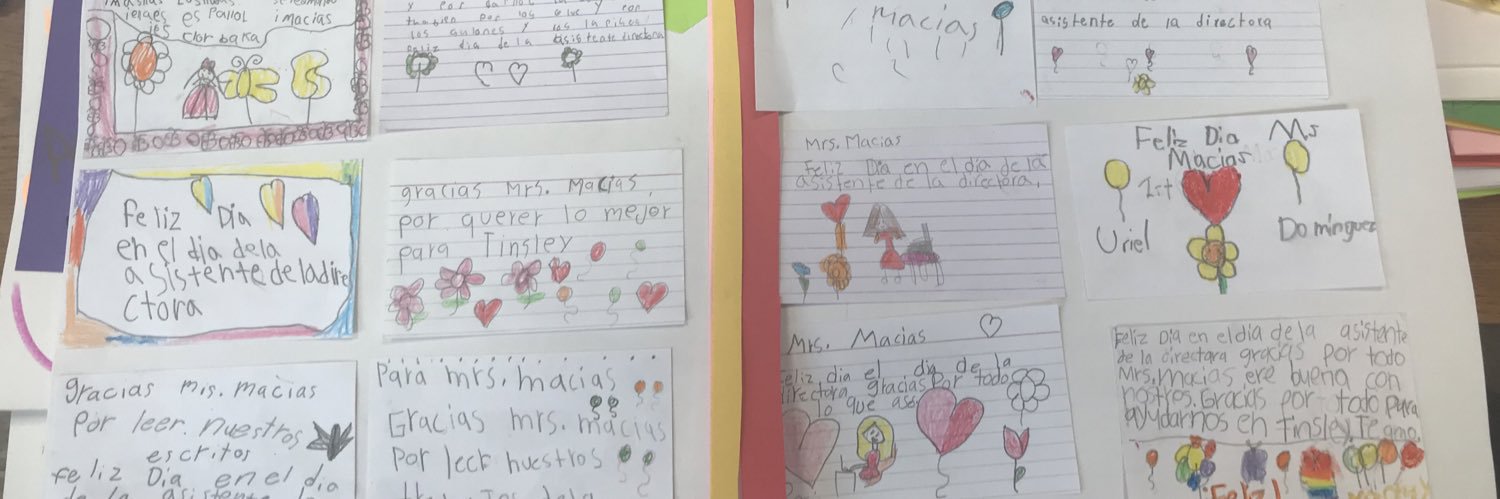 es Pallol imacias
des ctor baka
los
feliz dia de la asistente directora
Feliz Dia
en el dia dela
asistente deladire
ctora
gracias Mrs. Macias,
por querer lo mejor
para Tinsley
gracias mis. macias
Por leer. nuestros
escritos
feliz Dia en el dia
Para mrs. macias
Gracias mrs. macias
Por leer nuestros
Macias
asistente de la directora
Mrs. Macias
Feliz Dia en el dia de la
asistente de la directora.
Feliz Dia Ms
Macias
1st
Uriel
Dominguez
Mrs. Macias
feliz dia el dia de la
directora gracias Por todo
lo que
Feliz Dia en el dia de la asistente
de la directara gracias por todo
Mrs. Macias ere buena con
nostros. Gracias por todo para
ayudarnos en Tinsley. Te amo.
Feliz!